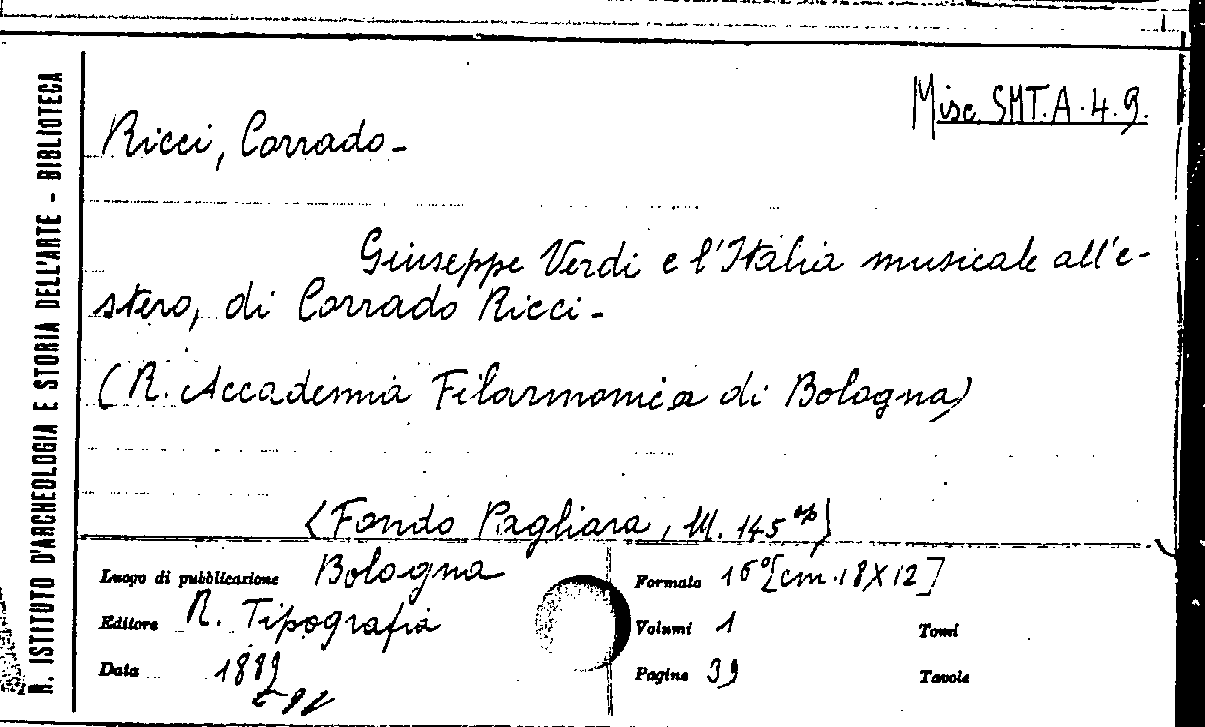 R. ISTITUTO D'ARCHEOLOGIA E STORIA DELL'ARTE - BIBLIOTECA
Misc. SMT.A.4.9.
Ricci, Corrado -
Giuseppe Verdi e l'Italia musicale all'e-
stero, di Corrado Ricci -
(R. Accademia Filarmonica di Bologna)
(Fondo Pagliara, M. 145
Luogo di pubblicazione Bologna Formato 16° [cm. 18X12]
Editore R. Tipografia Volumi 1 Tomi
Data 1889 Pagine 39 Tavole